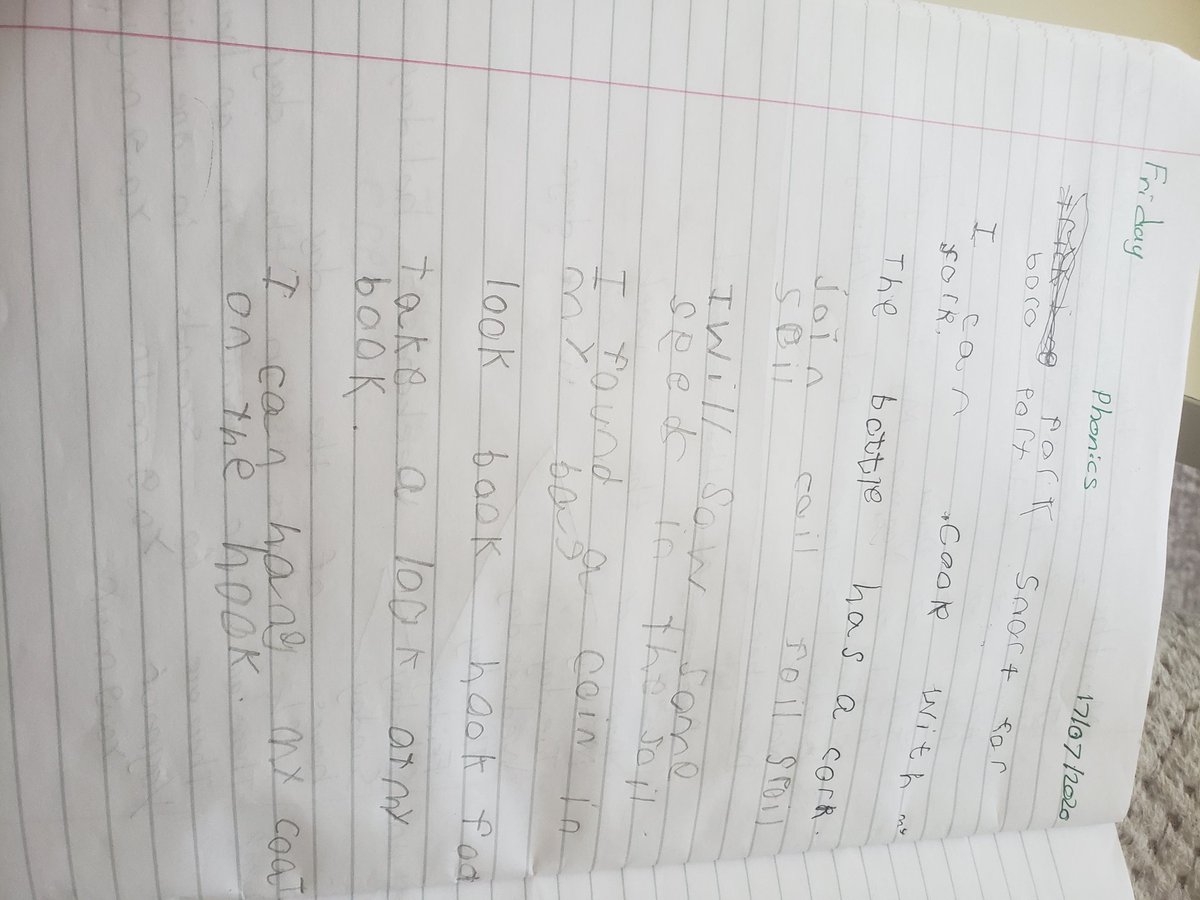 Friday Phonics 17/07/2020
fork Snort for
boro port
I can Cook with my
fork.
The bottle has a cork.
Join coil foil spoil
soil
I will sow some
seeds in the soil.
I found a coin in
my bag
look book hook foo
Take a look at my
book.
I can hang my coat
on the hook.